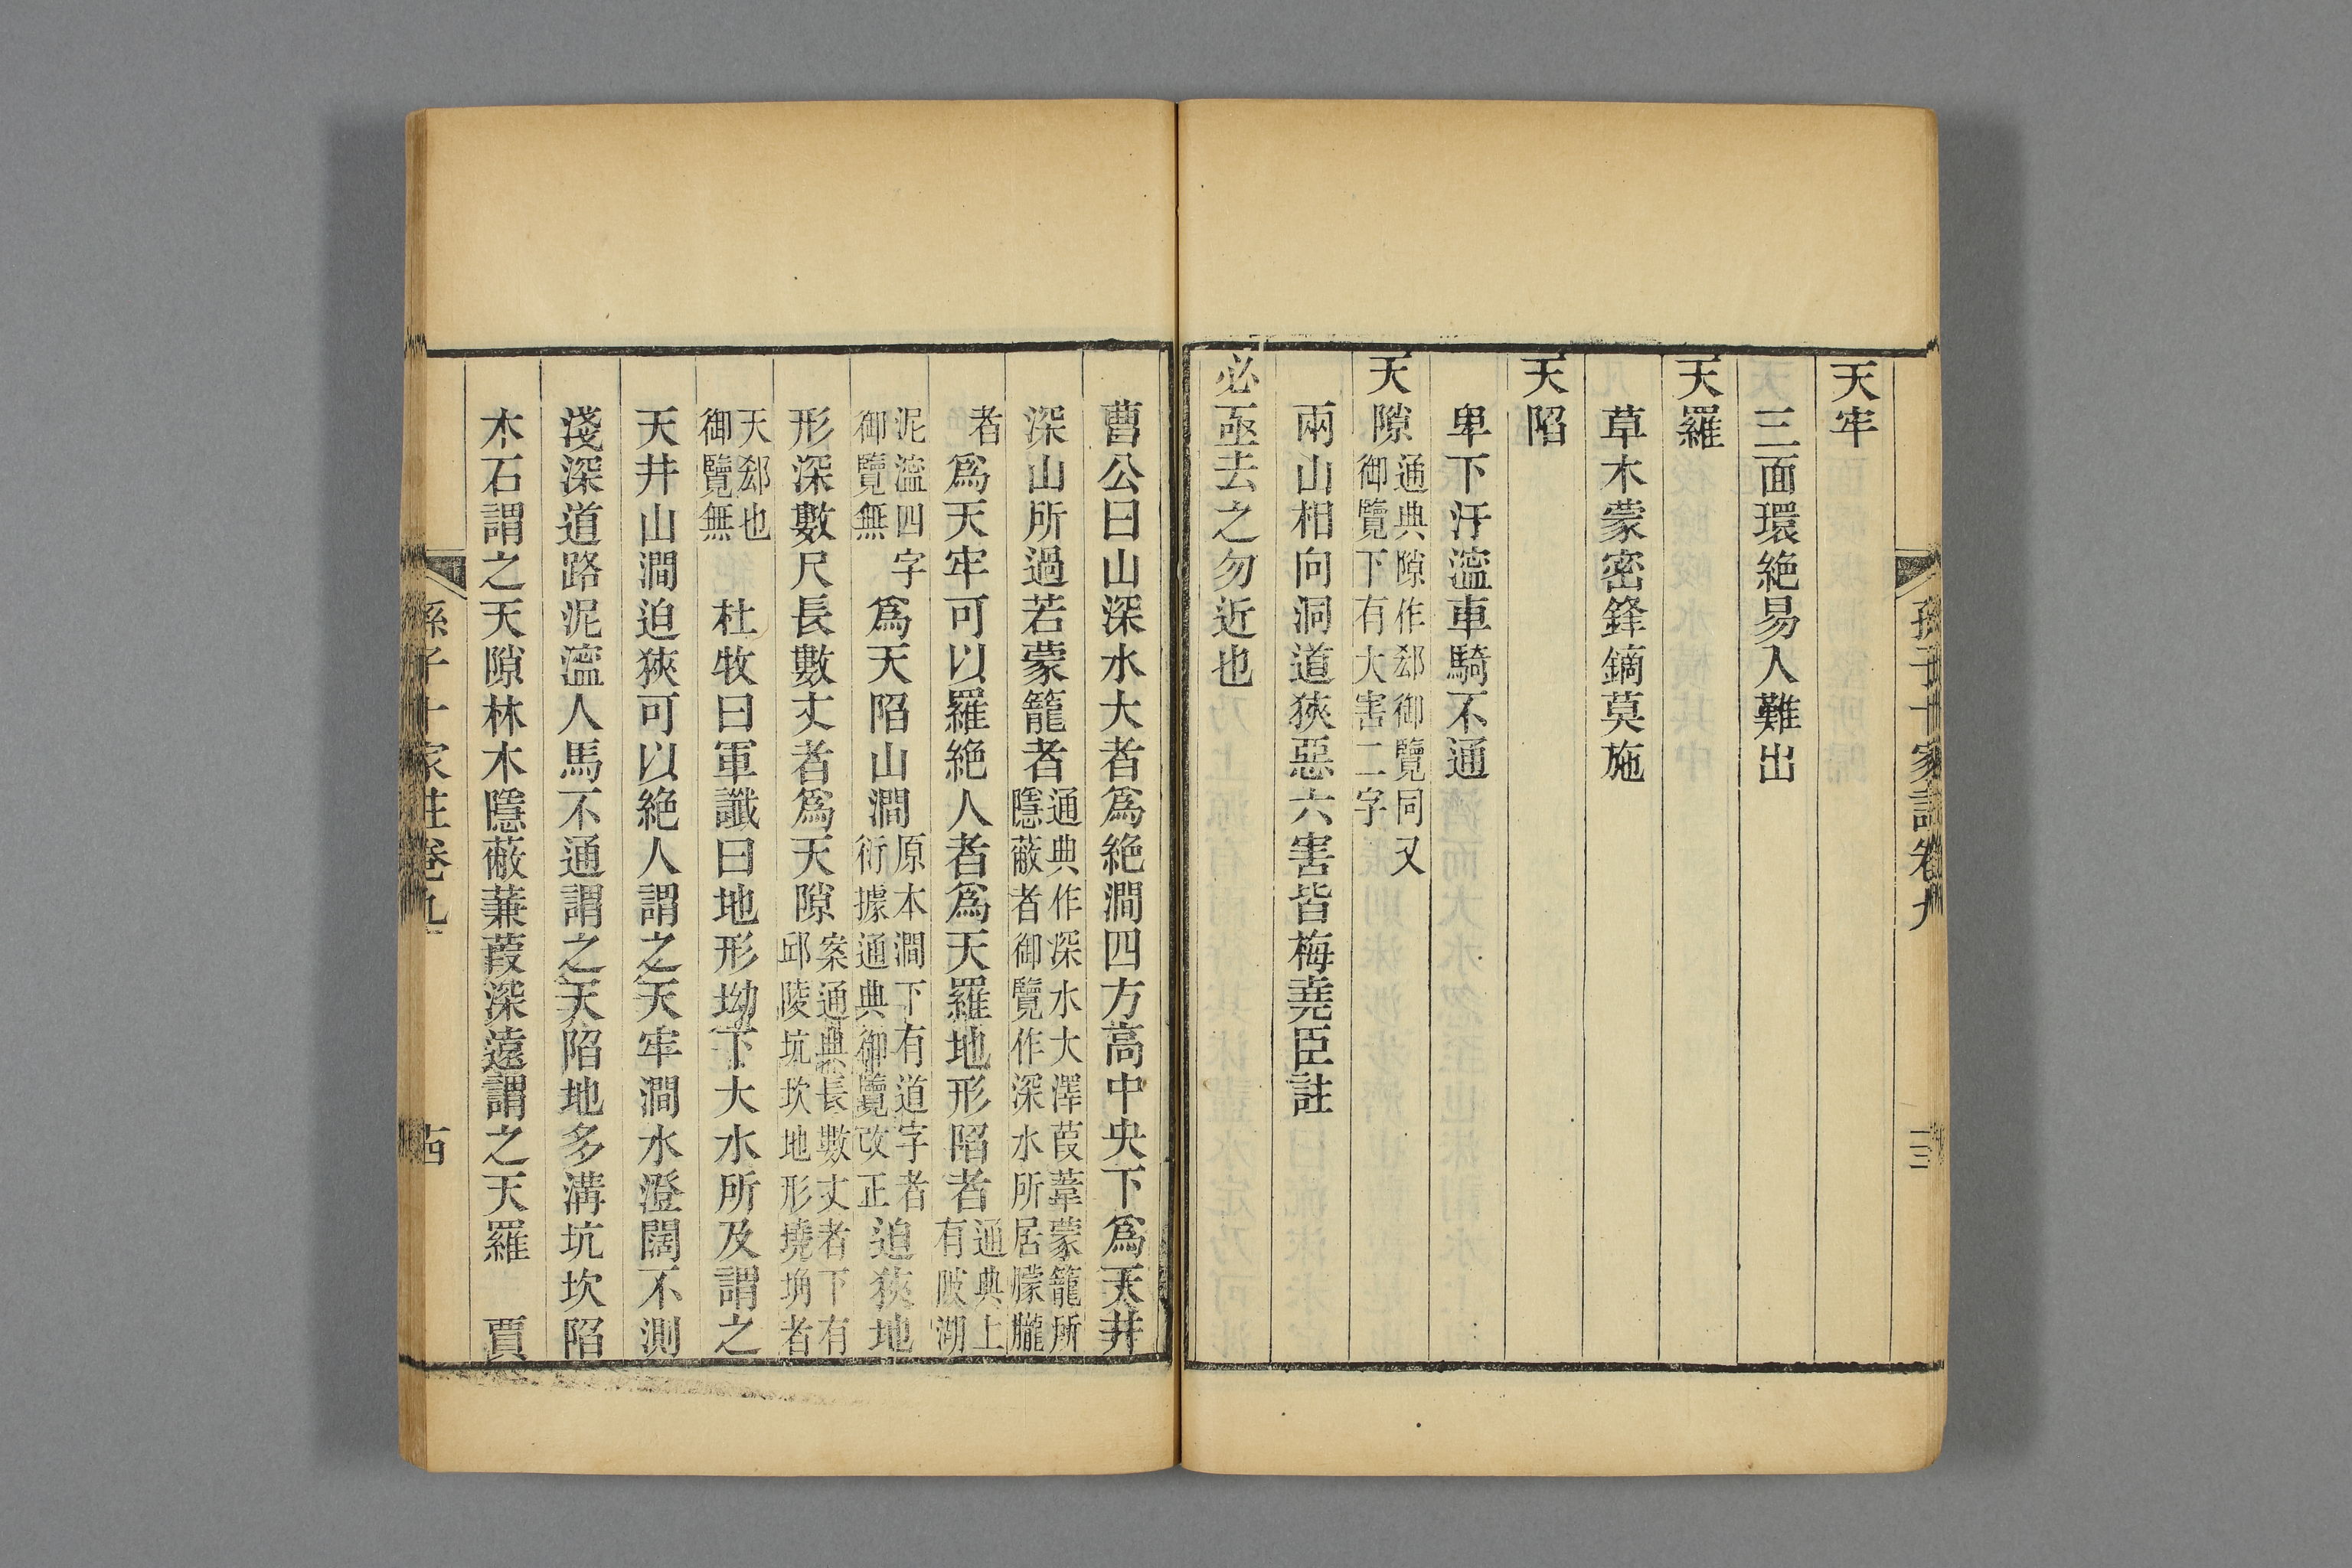 天牢
三面環絶易入難出
天羅
草木蒙密鋒鏑莫施
天陷
卑下汙濕車騎不通
天隙通典隙作郄御覽同又御覽下有大害二字
兩山相向洞道狹惡六害皆梅堯臣註
必亟去之勿近也
曹公曰山深水大者爲絶澗四方高中央下爲天井
深山所過若蒙籠者通典作深水大澤葭葦蒙籠所隱蔽者御覽作深水所居朦朧
者爲天牢可以羅絶人者爲天羅地形陷者通典上有陂湖
泥濕四字御覽無爲天陷山澗原本澗下有道字者衍據通典御覽改正迫狹地
形深數尺長數丈者爲天隙案通典長數丈者下有邱陵坑坎地形墝埆者
天郄也御覽無杜牧曰軍讖曰地形坳下大水所及謂之
天井山澗迫狹可以絶人謂之天牢澗水澄闊不測
淺深道路泥濕人馬不通謂之天陷地多溝坑坎陷
木石謂之天隙林木隱蔽蒹葭深遠謂之天羅 賈
孫子十家註卷九
十四